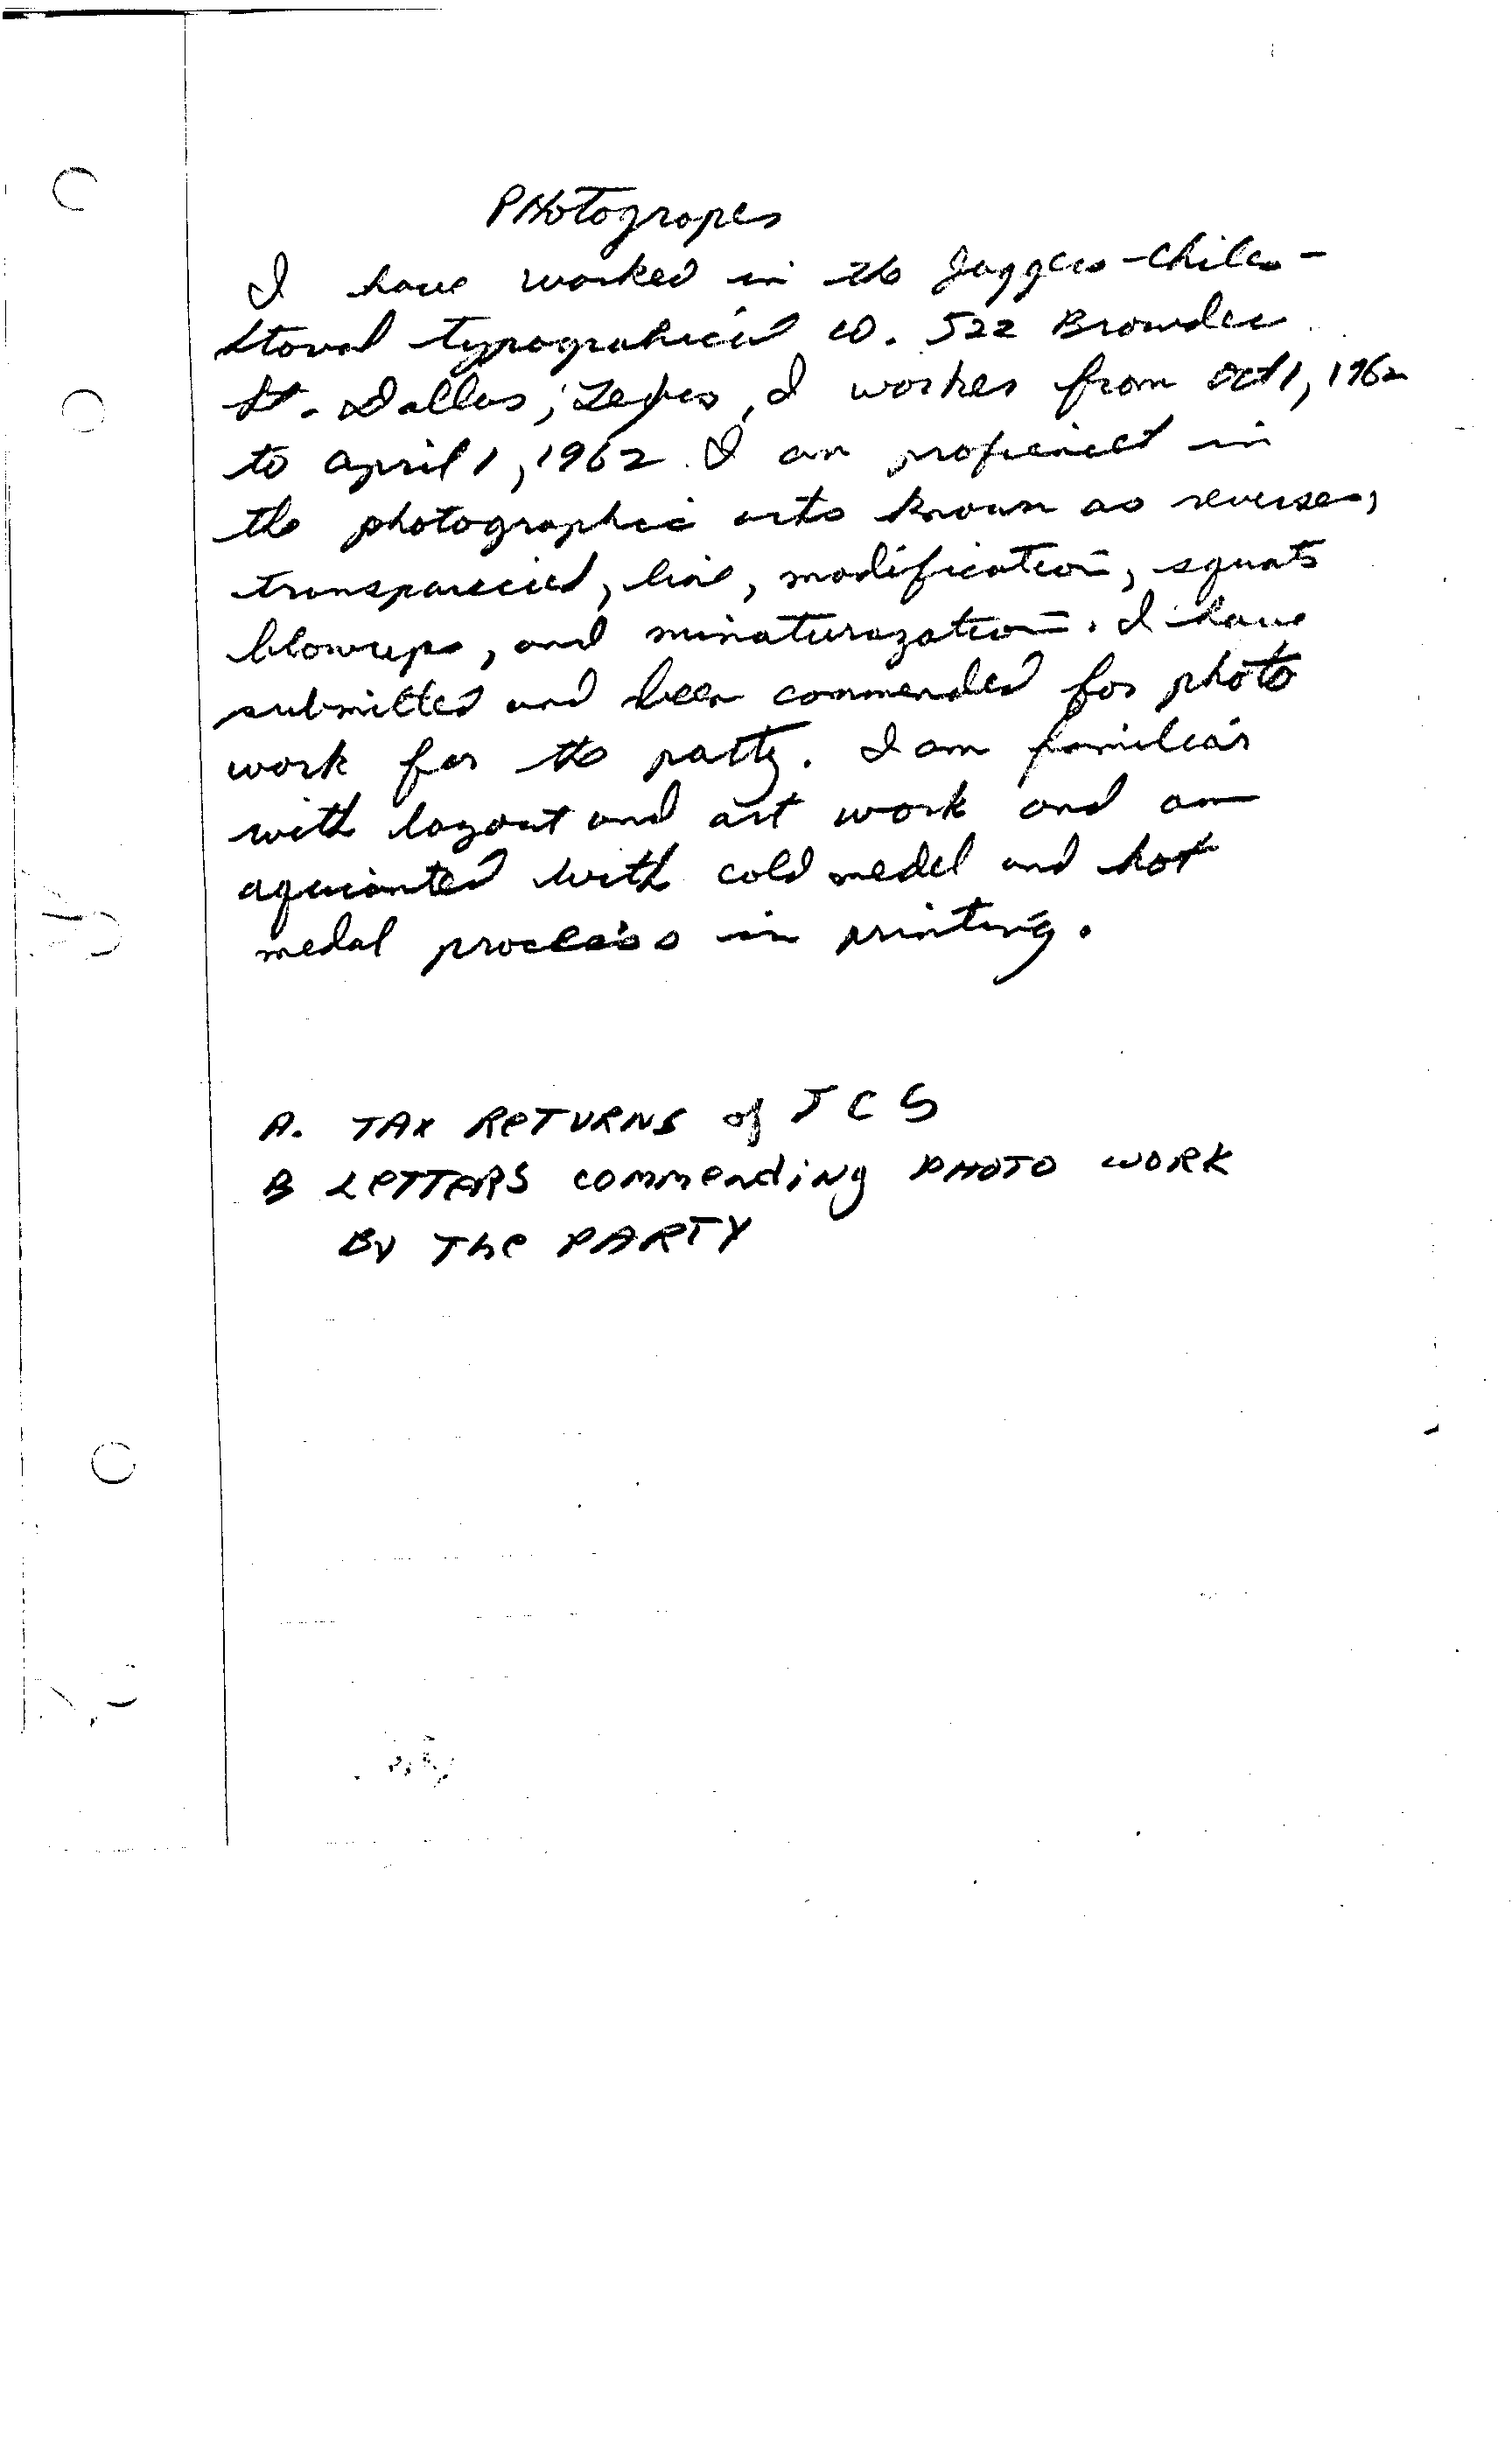 PHotogropes
I have worked in the Jaggers-Chiles-
Stoval typograhical co. 522 Browder
St. Dallas, Texas, I workes from Oct 1, 1962
to April 1, 1962. I am
the photographic arts known as reverses,
line, modification, squats
blowups, and minaturazation. I have
submitted and been commended for photo
work for the party. I am familiar
with layout and art work and am
aquianted with cold medel and hot
medal process in printing.
A. TAX RETURNS of JCS
B LETTERS commending PHOTO WORK
By The PARTY